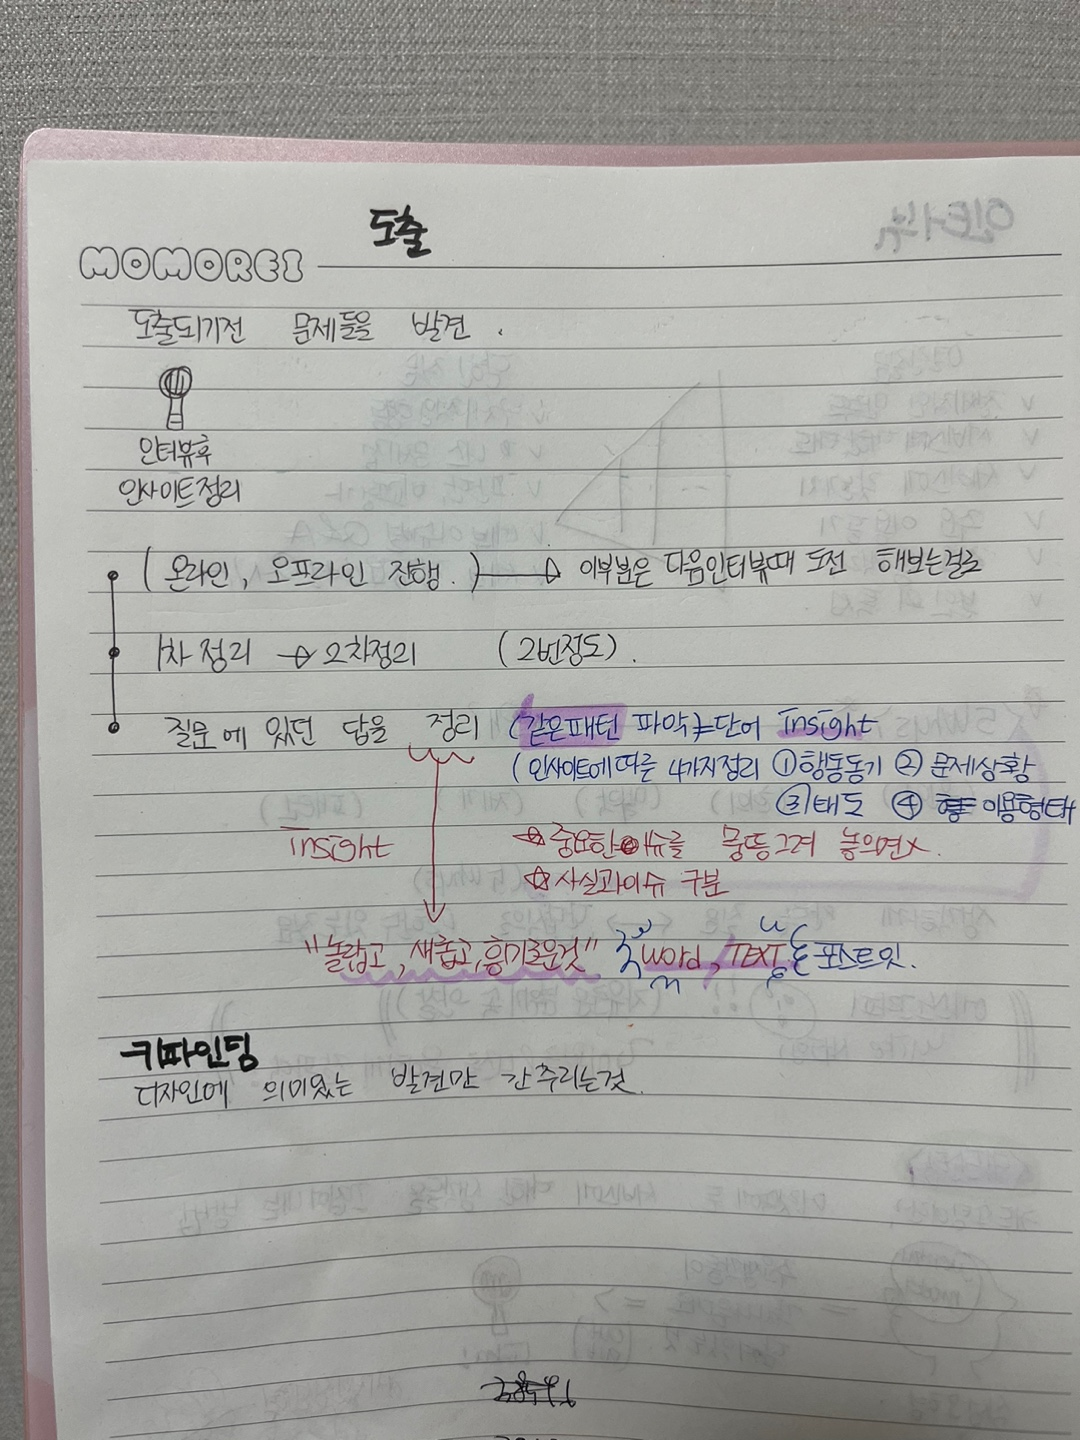 도출
MOMOREI
도출되기전 문제들을 발견.
인터뷰후
인사이트정리
(온라인, 오프라인 진행.) → 이부분은 다음인터뷰때 도전 해보는걸로
1차 정리 → 2차정리 (2번정도).
질문에 있던 답을 정리 (같은패턴 파악)=단어 insight
(인사이트에따른 4가지정리 ①행동동기 ② 문제상황
③태도 ④ 이용형태
insight
☆중요한이슈를 뭉뚱그려 놓으면X.
☆사실과이슈 구분
"놀랍고, 새롭고, 향기로운것" word, TEXT 포스트잇.
키파인딩
디자인에 의미있는 발견만 간추리는것.